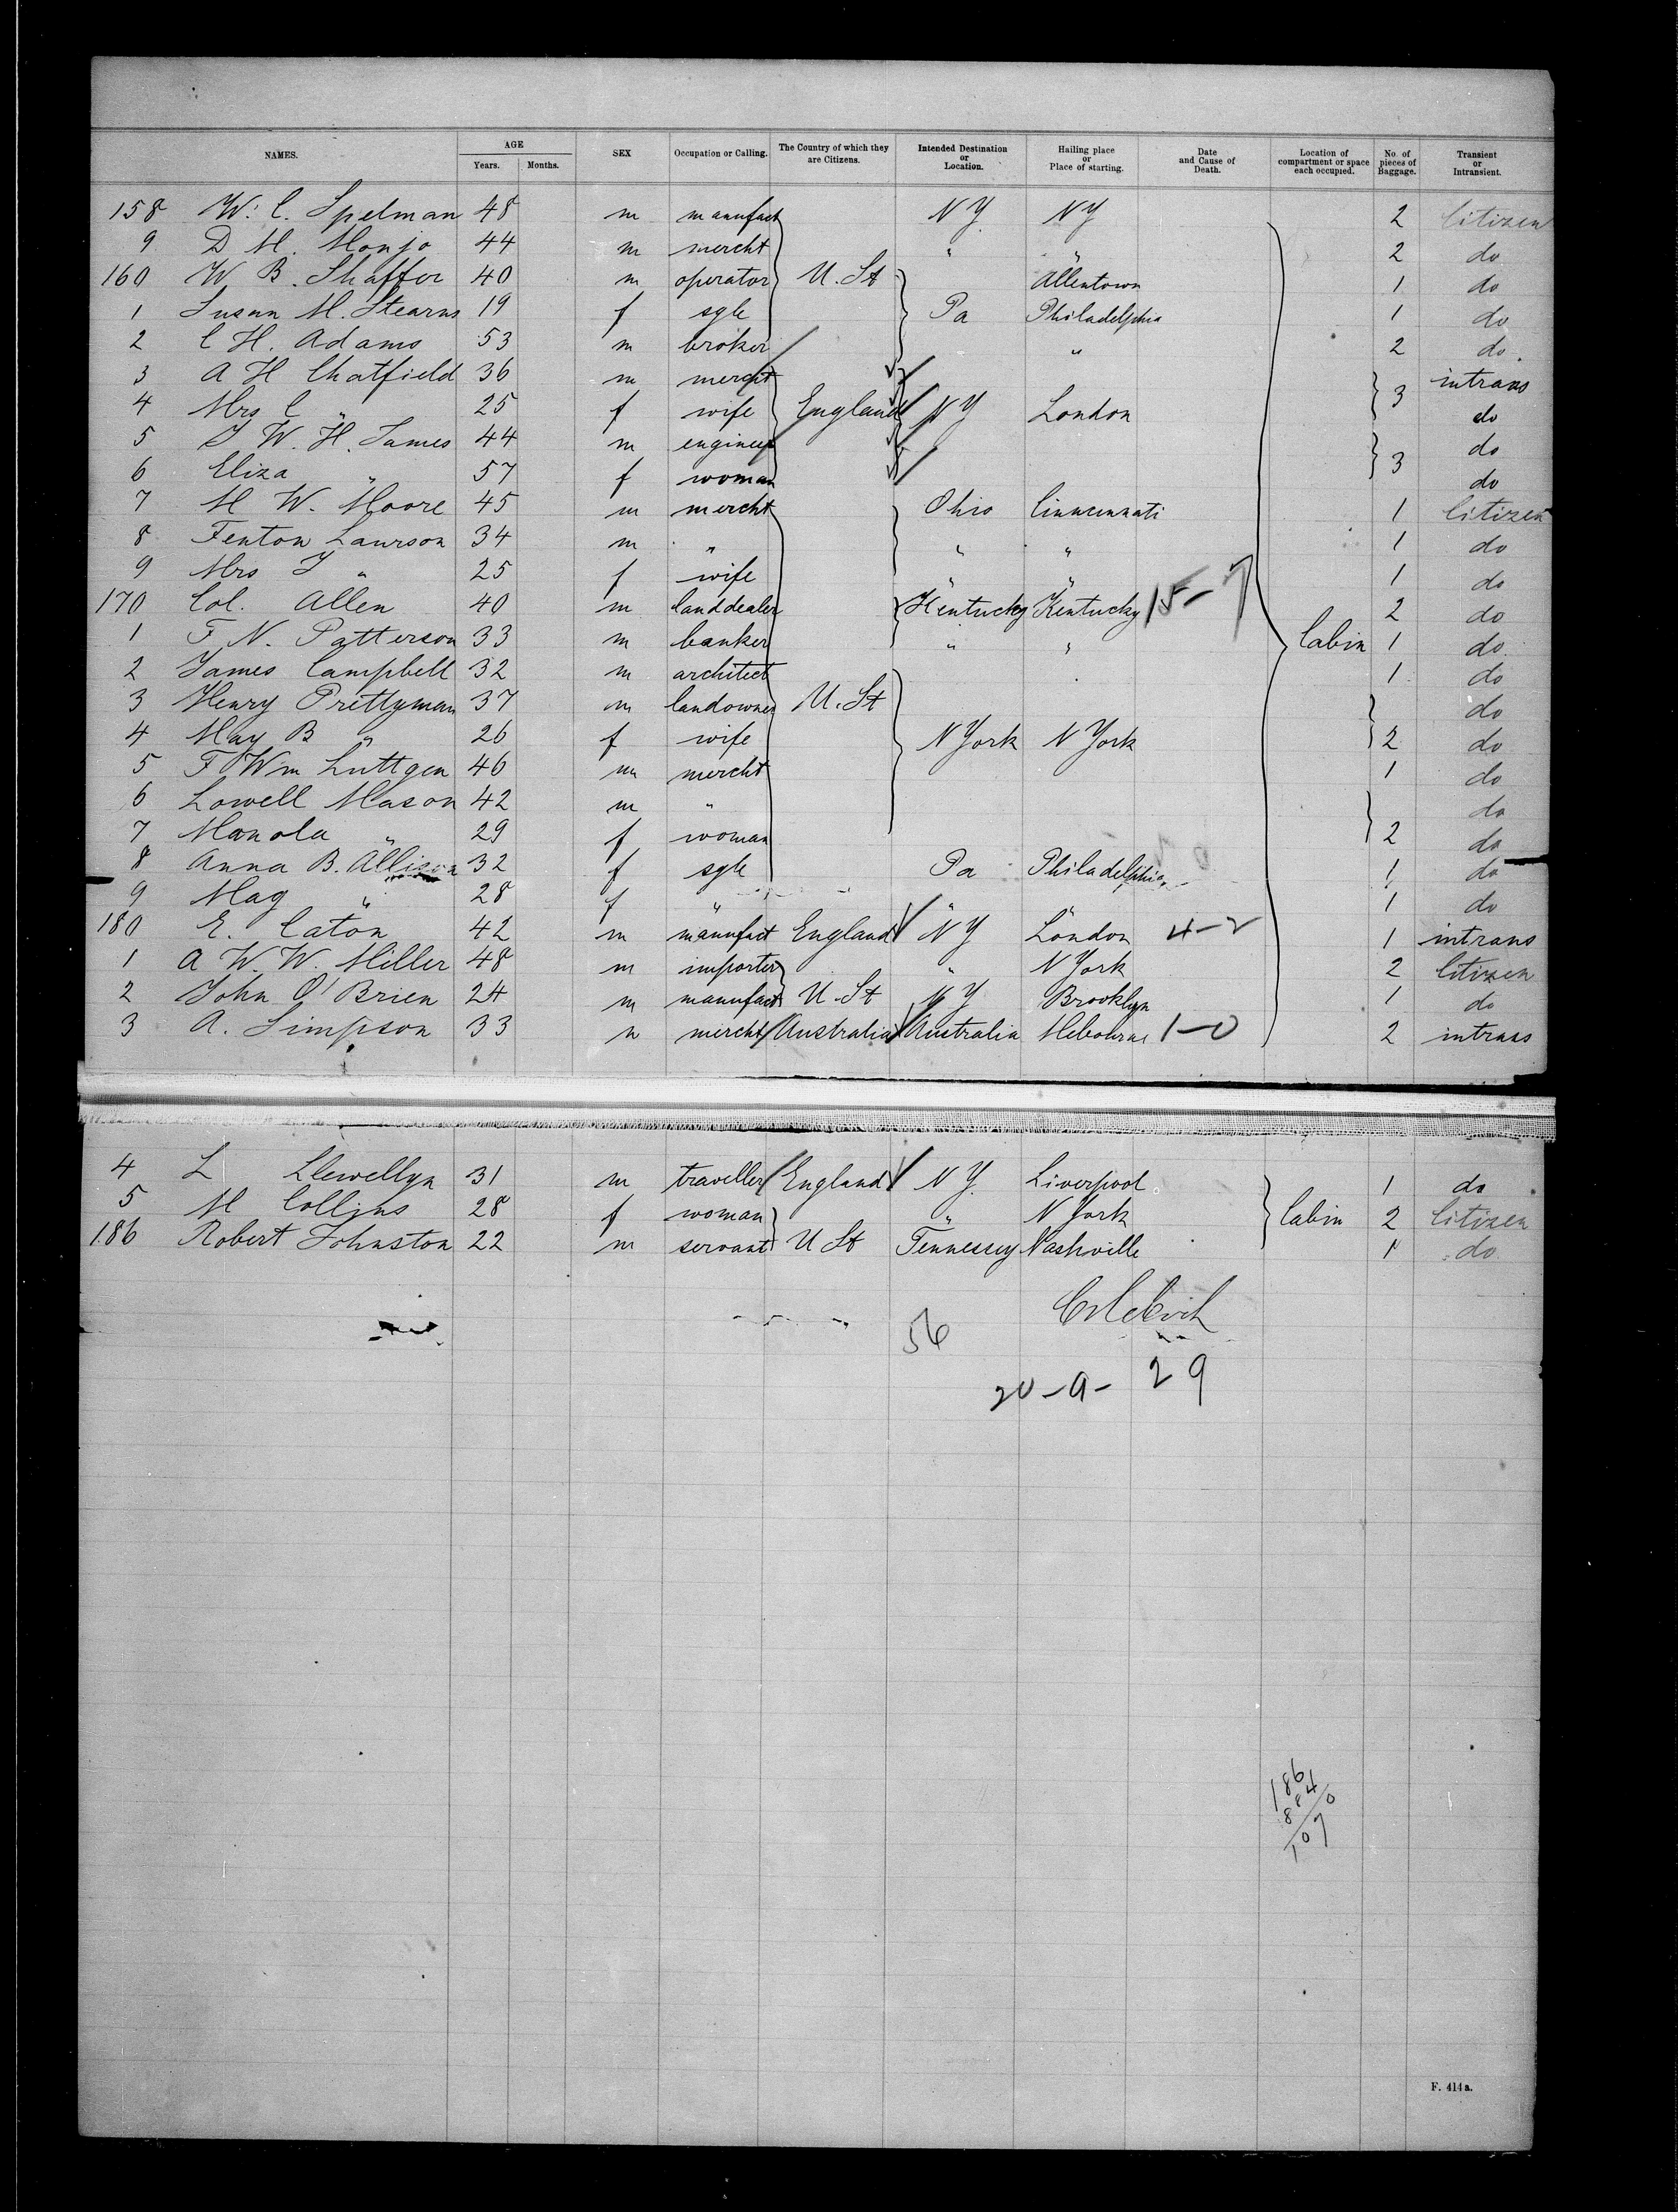 NAMES. AGE SEX Occupation or Calling. The Country of which they are Citizens. Intended Destination or Location. Hailing place or Place of starting. Date and Cause of Death. Location of compartment or space each occupied. No. of pieces of Baggage. Transient or Intransient.
Years. Months.
158 W. C. Spelman 48 m manufact N Y N Y 2 Citizen
9 D M. Monjo 44 m mercht " " 2 do
160 W B. Shaffer 40 m operator U. St Allentown 1 do
1 Susan M. Stearns 19 f sgle Pa Philadelphia 1 do
2 C H. Adams 53 m broker " 2 do.
3 A H Chatfield 36 m mercht intrans
4 Mrs C " 25 f wife England N Y London 3 do
5 J W. H. James 44 m engineer do
6 Eliza " 57 f woman 3 do
7 M W. Moore 45 m mercht Ohio Cinncunnati 1 Citizen
8 Fenton Lawson 34 m " " " 1 do
9 Mrs J " 25 f wife " " 1 do
170 Col. Allen 40 m landdealer Kentucky Kentucky 15-7 2 do
1 F. N. Patterson 33 m banker " " Cabin 1 do
2 James Campbell 32 m architect 1 do
3 Henry Prettyman 37 m landowner U. St do
4 May B " 26 f wife N York N York 2 do
5 F Wm Luttgen 46 m mercht 1 do
6 Lowell Mason 42 m " do
7 Manola " 29 f woman 2 do
8 Anna B. Allison 32 f sgle Pa Philadelphia 1 do
9 Mag " 28 f " " " 1 do
180 E. Caton 42 m manufact England N Y London 4-2 1 intrans
1 A W. W. Miller 48 m importer " N York 2 Citizen
2 John O'Brien 24 m manufact U. St N Y Brooklyn 1 do
3 A. Simpson 33 m mercht Australia Australia Melbourne 1-0 2 intrans
4 L Llewellyn 31 m traveller England N Y. Liverpool 1 do
5 M Collins 28 f woman " N York Cabin 2 Citizen
186 Robert Johnston 22 m servant U St Tennessey Nashville 1 do
56
20-9-29
186
884
1070
F. 414a.